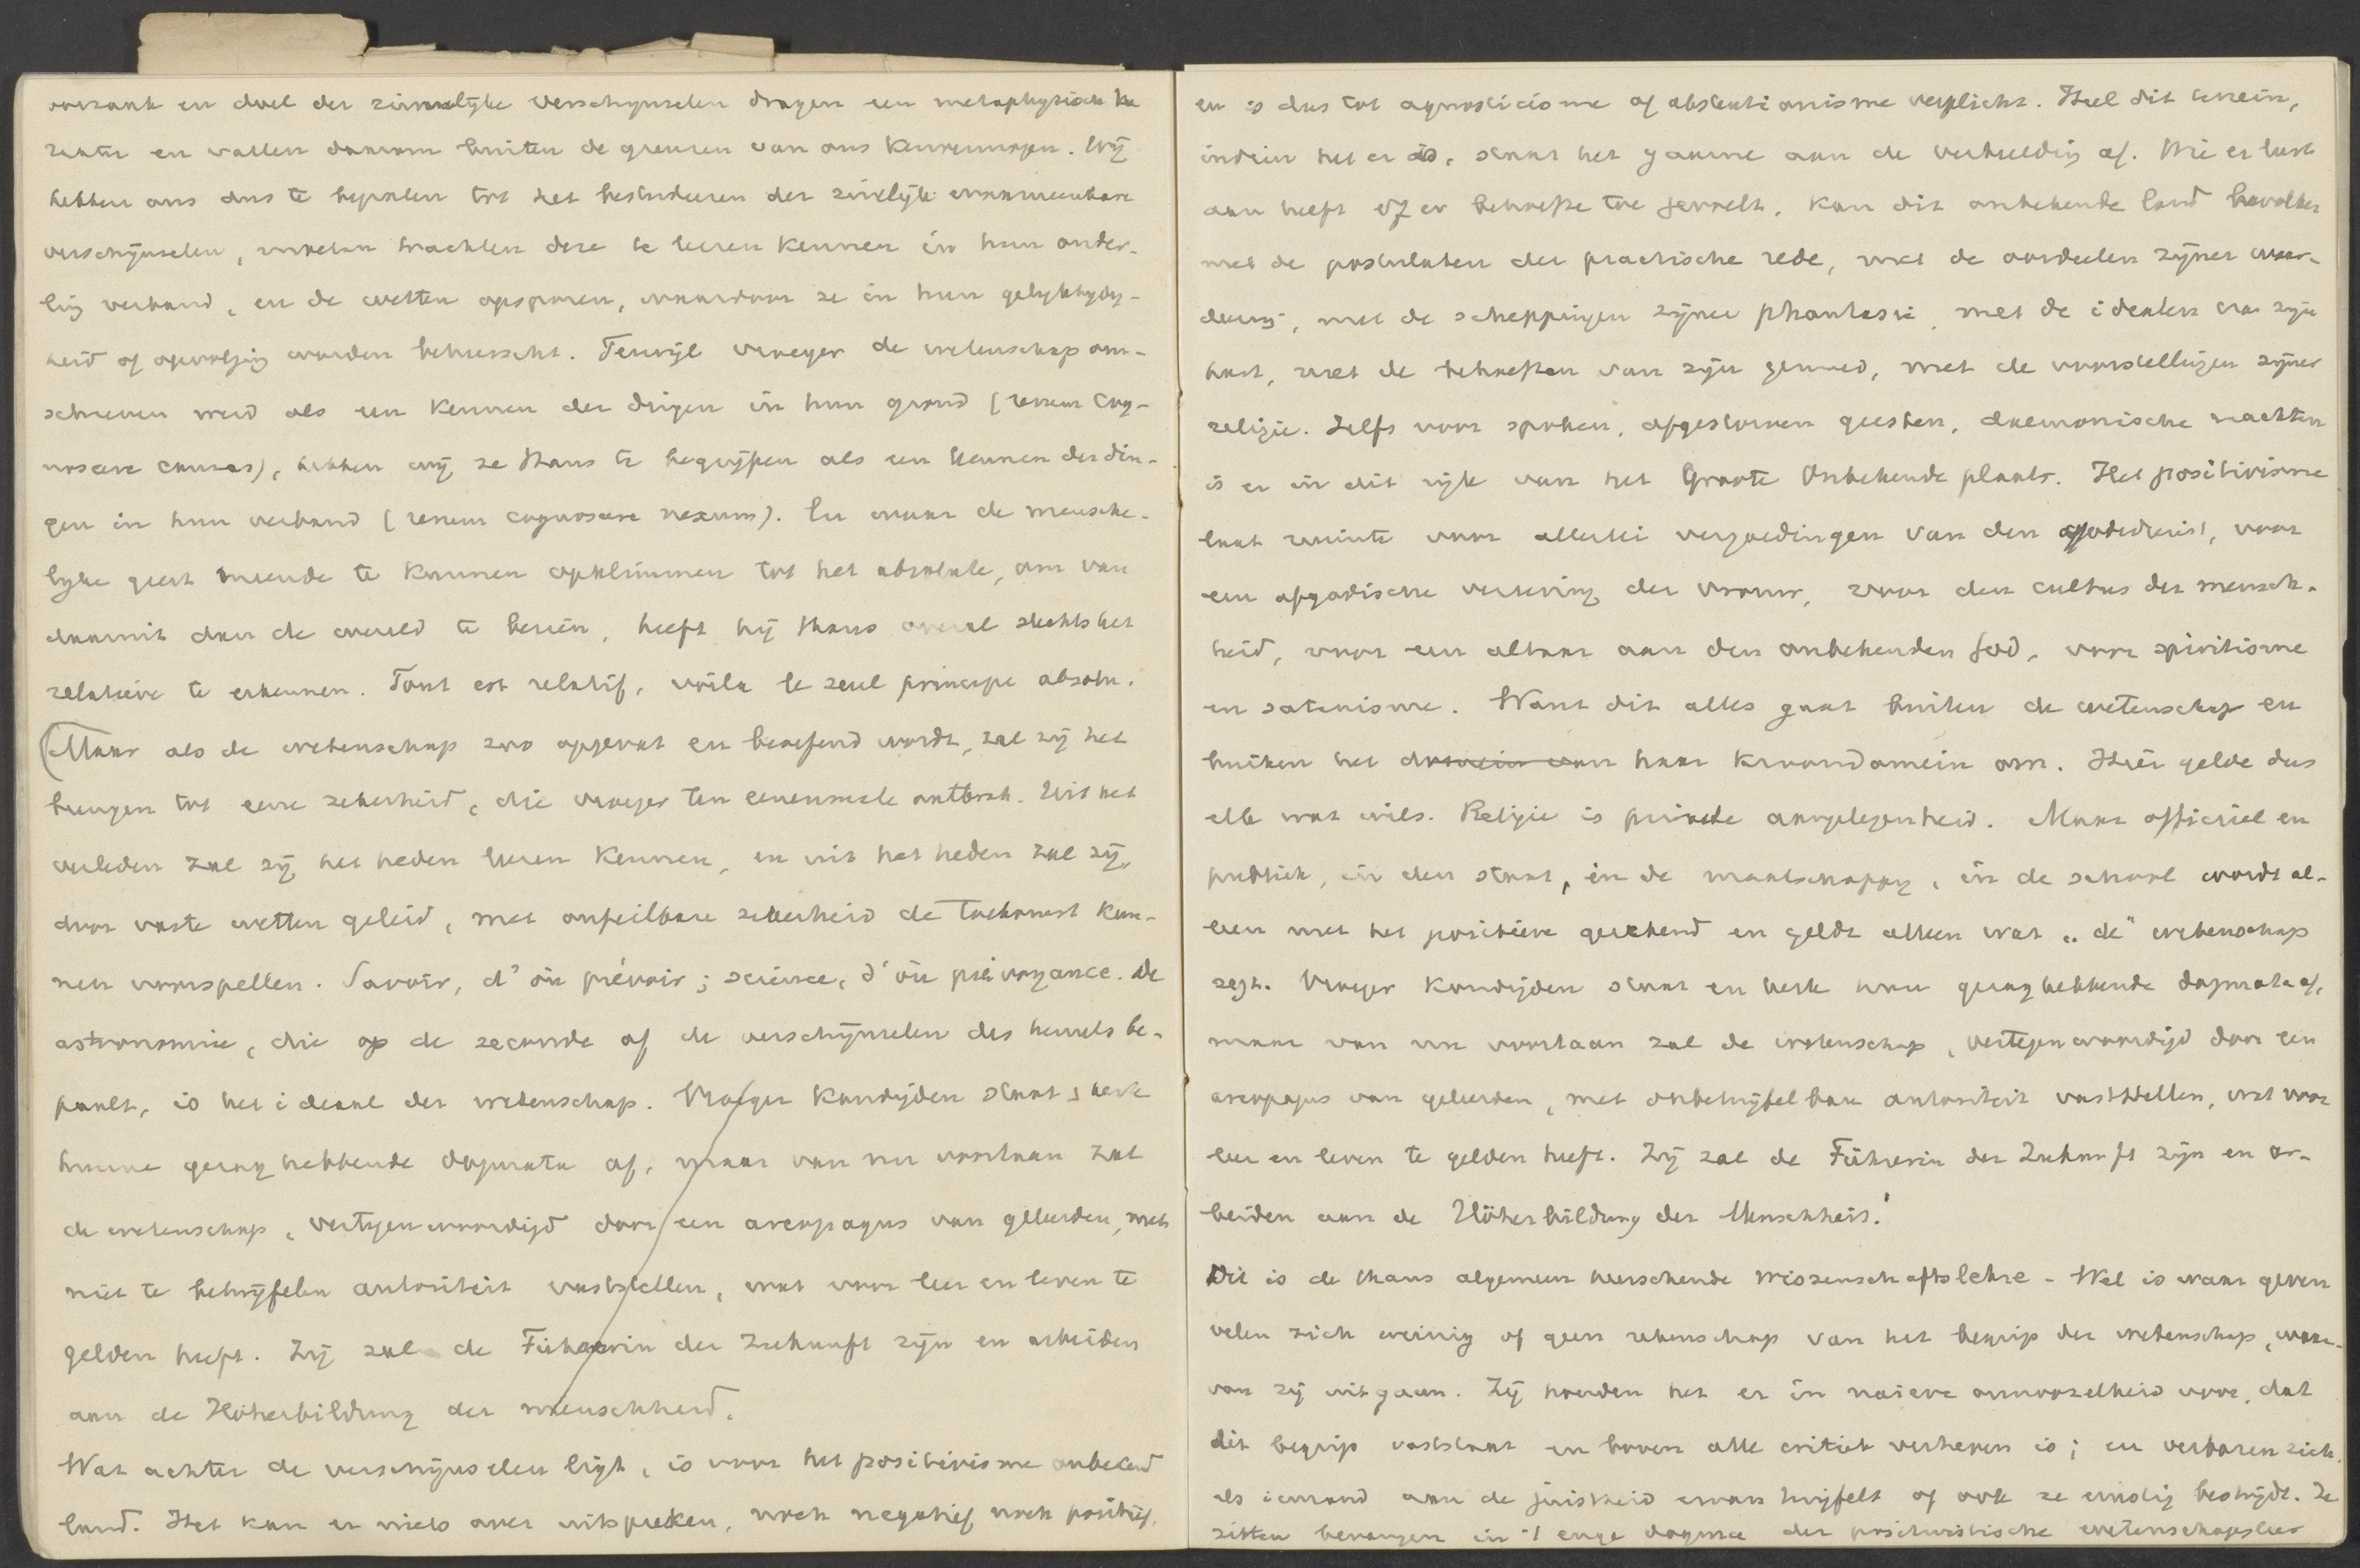 oorzaak en doel der zinnelijke verschijnselen dragen een metaphysisch ka
rakter en vallen daarom buiten de grenzen van ons kenvermogen. Wij
hebben ons dus te bepalen tot het bestudeeren der zinlijk waarneembare
verschijnselen, moeten trachten deze te leeren kennen in hun onder-
ling verband, en de wetten opsporen, waardoor ze in hun gelijktijdig-
heid of opvolging worden beheerscht. Terwijl vroeger de wetenschap om-
schreven werd als een kennen der dingen in hun grond (rerum cog-
noscere causas), hebben wij ze thans te begrijpen als een kennen der din-
gen in hun verband (rerum cognoscere nexum). En waar de mensche-
lijke geest meende te kunnen opklimmen tot het absolute, om van
daaruit dan de wereld te bezien, heeft hij thans overal slechts het
relatieve te erkennen. Tout est relatif, voila le seul principe absolu.
(Maar als de wetenschap zoo opgevat en beoefend wordt, zal zij het
brengen tot eene zekerheid, die vroeger ten eenenmale ontbrak. Uit het
verleden zal zij het heden leeren kennen, en uit het heden zal zij,
door vaste wetten geleid, met onfeilbare zekerheid de toekomst kun-
nen voorspellen. Savoir, d'où prévoir; science, d'où prévoyance. De
astronomie, die op de seconde af de verschijnselen des hemels be-
paalt, is het ideaal der wetenschap. Vroeger kondigden staat en kerk
hunne gezag hebbende dogmata af, maar van nu voortaan zal
de wetenschap, vertegenwoordigd door een areopagus van geleerden, met
niet te betwijfelen autoriteit vaststellen, wat voor leer en leven te
gelden heeft. Zij zal de Führerin der Zukunft zijn en arbeiden
aan de Höherbildung der menschheid.
Wat achter de verschijnselen ligt, is voor het positivisme onbekend
land. Het kan er niets over uitspreken, noch negatief noch positief,
en is dus tot agnosticisme of abstentionisme verplicht. Heel dit terrein,
indien het er is, staat het gaarne aan de verbeelding af. Wie er lust
aan heeft of er behoefte toe gevoelt, kan dit onbekende land bevolken
met de postulaten der practische rede, met de oordeelen zijner waar-
deering, met de scheppingen zijner phantasie, met de idealen van zijn
kunst, met de behoeften van zijn gemoed, met de voorstellingen zijner
religie. Zelfs voor spoken, afgestorven geesten, daemonische machten
is er in dit rijk van het Groote Onbekende plaats. Het positivisme
laat ruimte voor allerlei vergoedingen van den godsdienst, voor
een afgodische vereering der vrouw, voor den cultus der mensch-
heid, voor een altaar aan den onbekenden God, voor spiritisme
en satanisme. Want dit alles gaat buiten de wetenschap en
buiten het domein van haar kroondomein om. Hier gelde dus
elk wat wils. Religie is private aangelegenheid. Maar officieel en
publiek, in den staat, in de maatschappij, in de school wordt al-
leen met het positieve gerekend en geldt alleen wat „de" wetenschap
zegt. Vroeger kondigden staat en kerk haar gezaghebbende dogmata af,
maar van nu voortaan zal de wetenschap, vertegenwoordigd door een
areopagus van geleerden, met onbetwijfelbare autoriteit vaststellen, wat voor
leer en leven te gelden heeft. Zij zal de Führerin der Zukunft zijn en ar-
beiden aan de Höherbildung der Menschheit.
Dit is de thans algemeen heerschende Wissenschaftslehre - Wel is waar geven
velen zich weinig of geen rekenschap van het begrip der wetenschap, waar-
van zij uitgaan. Zij houden het er in naieve onnoozelheid voor, dat
dit begrip vaststaat en boven alle critiek verheven is; en verbazen zich,
als iemand aan de juistheid ervan twijfelt of ook ze ernstig bestrijdt. Ze
zitten bevangen in 't enge dogma der positivistische wetenschapsleer